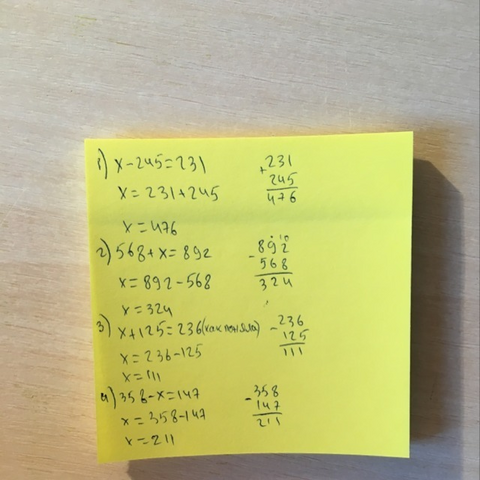 1) x-245=231
x=231+245
x=476
+231
245
476
2) 568+x=892
x=892-568
x=324
-892
568
324
3) x+125=236 (как
x=236-125
x=111
-236
125
111
4) 358-x=147
x=358-147
x=211
-358
147
211